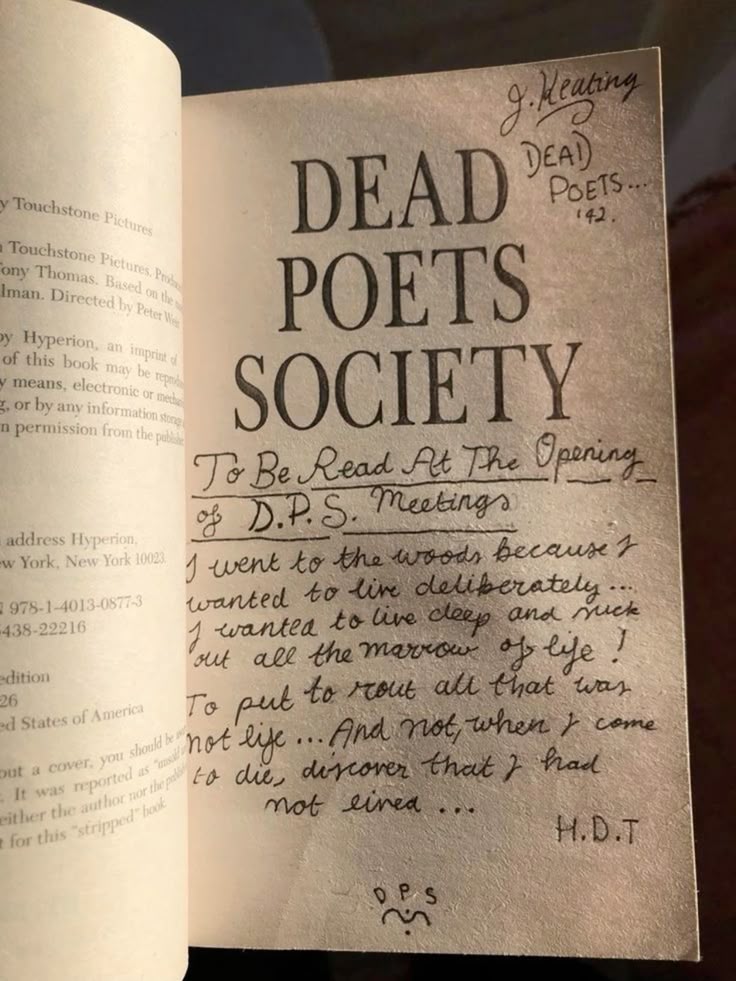 y Touchstone Pictures
Touchstone Pictures. Produ
Tony Thomas. Based on the
lman. Directed by Peter Weir
by Hyperion, an imprint of
of this book may be reprodu
y means, electronic or mechan
g, or by any information storage
n permission from the publishe
address Hyperion,
ew York, New York 10023.
978-1-4013-0877-3
438-22216
edition
26
ed States of America
out a cover, you should be
. It was reported as "unsold
either the author nor the publis
t for this "stripped" book.
J. Keating
DEAD
POETS...
'42.
DEAD
POETS
SOCIETY
To Be Read At The Opening
of D.P.S. Meetings
I went to the woods because I
wanted to live deliberately...
I wanted to live deep and suck
out all the marrow of life!
To put to rout all that was
not life... And not, when I come
to die, discover that I had
not lived...
H.D.T
D P S